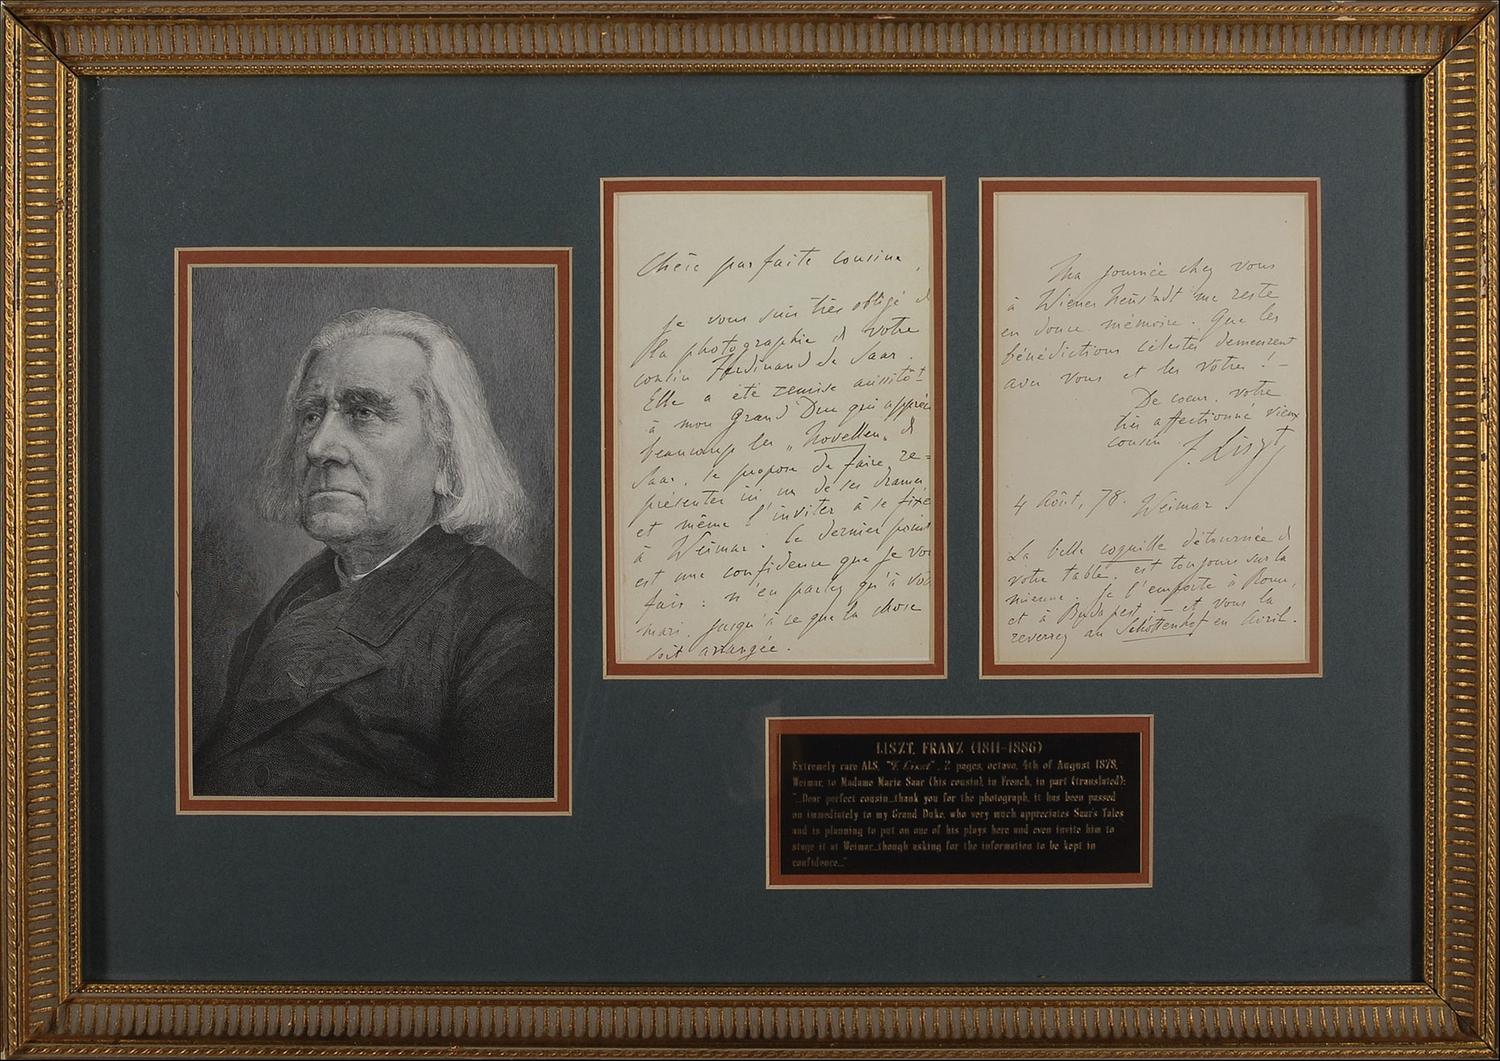 Chère parfaite cousine,
Je vous suis très obligé d
la photographie d votre
cousin Ferdinand de Saar.
Elle a été remise aussitôt
à mon Grand Duc qui appréc
beaucoup les „Novellen„ d
Saar, se propose de faire re=
présenter ici un de ses drames
et même l'inviter à se fixe
à Weimar. Ce dernier point
est une confidence que je vou
fais : n'en parlez qu'à vot
mari, jusqu'à ce que la chose
soit arrangée.
Ma journée chez vous
à Wiener Neustadt me reste
en douce mémoire. Que les
bénédictions célestes demeurent
avec vous et les vôtres ! –
De coeur, votre
très affectionné vieux
cousin F. Liszt
4 Août, 78. Weimar.
La belle coquille détournée d
votre table, est toujours sur la
mienne. Je l'emporte à Rome,
et à Budapest ; – et vous la
reverrez au Schottenhof en Avril.
LISZT, FRANZ (1811-1886)
Extremely rare ALS, "F. Liszt", 2 pages, octavo, 4th of August 1878,
Weimar, to Madame Marie Saar (his cousin), in French, in part (translated):
"...Dear perfect cousin...thank you for the photograph, it has been passed
on immediately to my Grand Duke, who very much appreciates Saar's Tales
and is planning to put on one of his plays here and even invite him to
stage it at Weimar...though asking for the information to be kept in
confidence..."